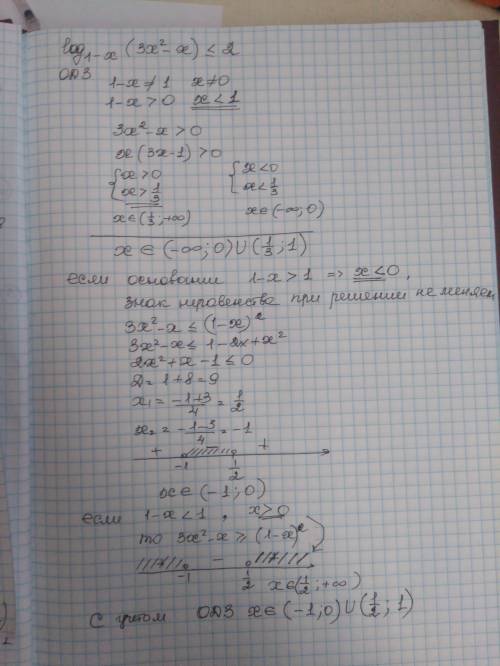 log₁₋ₓ (3x² - x) ≤ 2
ОДЗ
1-x ≠ 1 x≠0
1-x > 0 x < 1
3x² - x > 0
x (3x-1) > 0
{ x > 0 { x < 0
{ x > 1/3 { x < 1/3
x ∈ (1/3; +∞) x ∈ (-∞; 0)
x ∈ (-∞; 0) ∪ (1/3; 1)
если основании 1-x > 1 => x < 0,
знак неравенства при решении не меняем
3x² - x ≤ (1-x)²
3x² - x ≤ 1 - 2x + x²
2x² + x - 1 ≤ 0
D = 1 + 8 = 9
x₁ = (-1+3)/4 = 1/2
x₂ = (-1-3)/4 = -1
+ +
-1 1/2
x ∈ (-1; 0)
если 1-x < 1, x > 0
то 3x² - x ≥ (1-x)²
-
-1 1/2 x ∈ (1/2; +∞)
с учетом ОДЗ x ∈ (-1; 0) ∪ (1/2; 1)